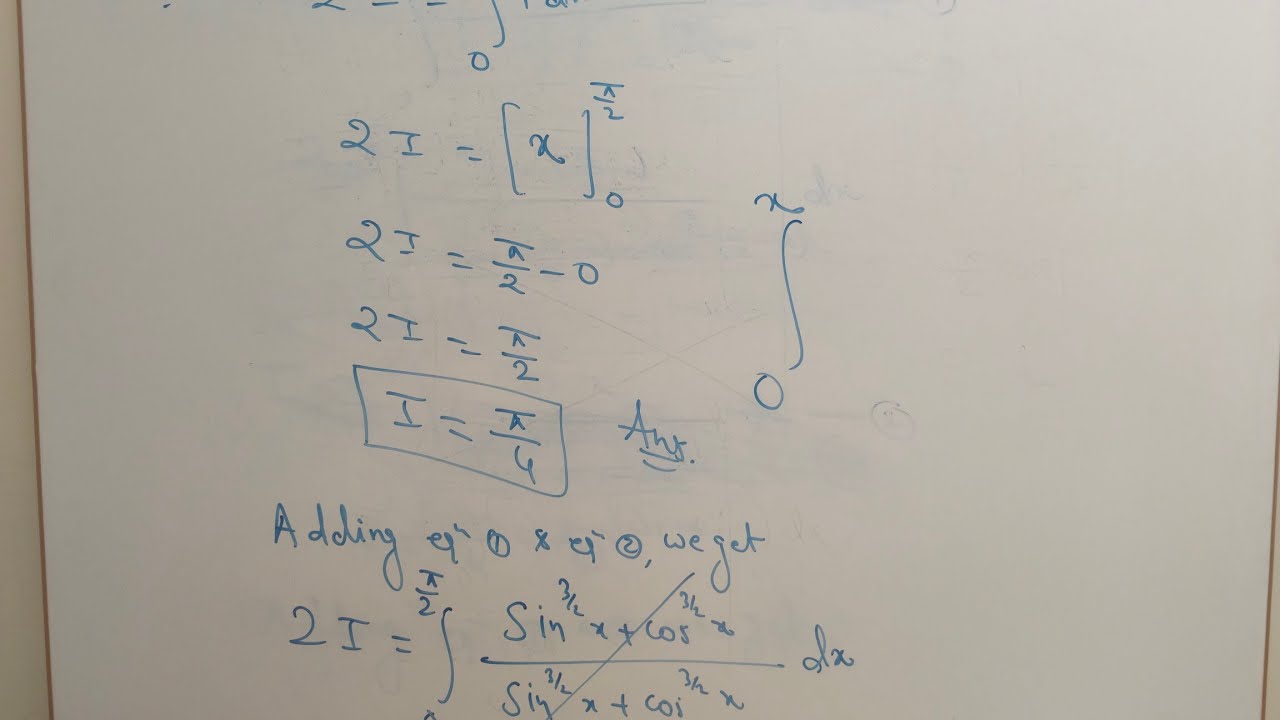 2 I = ∫
0
2 I = [x]
π/2
0
2 I = π/2 - 0
2 I = π/2
I = π/4 Ans.
x
∫
0
Adding eqn ① & eqn ②, we get
2 I = ∫ π/2 Sin^3/2 x + cos^3/2 x / Sin^3/2 x + cos^3/2 x dx